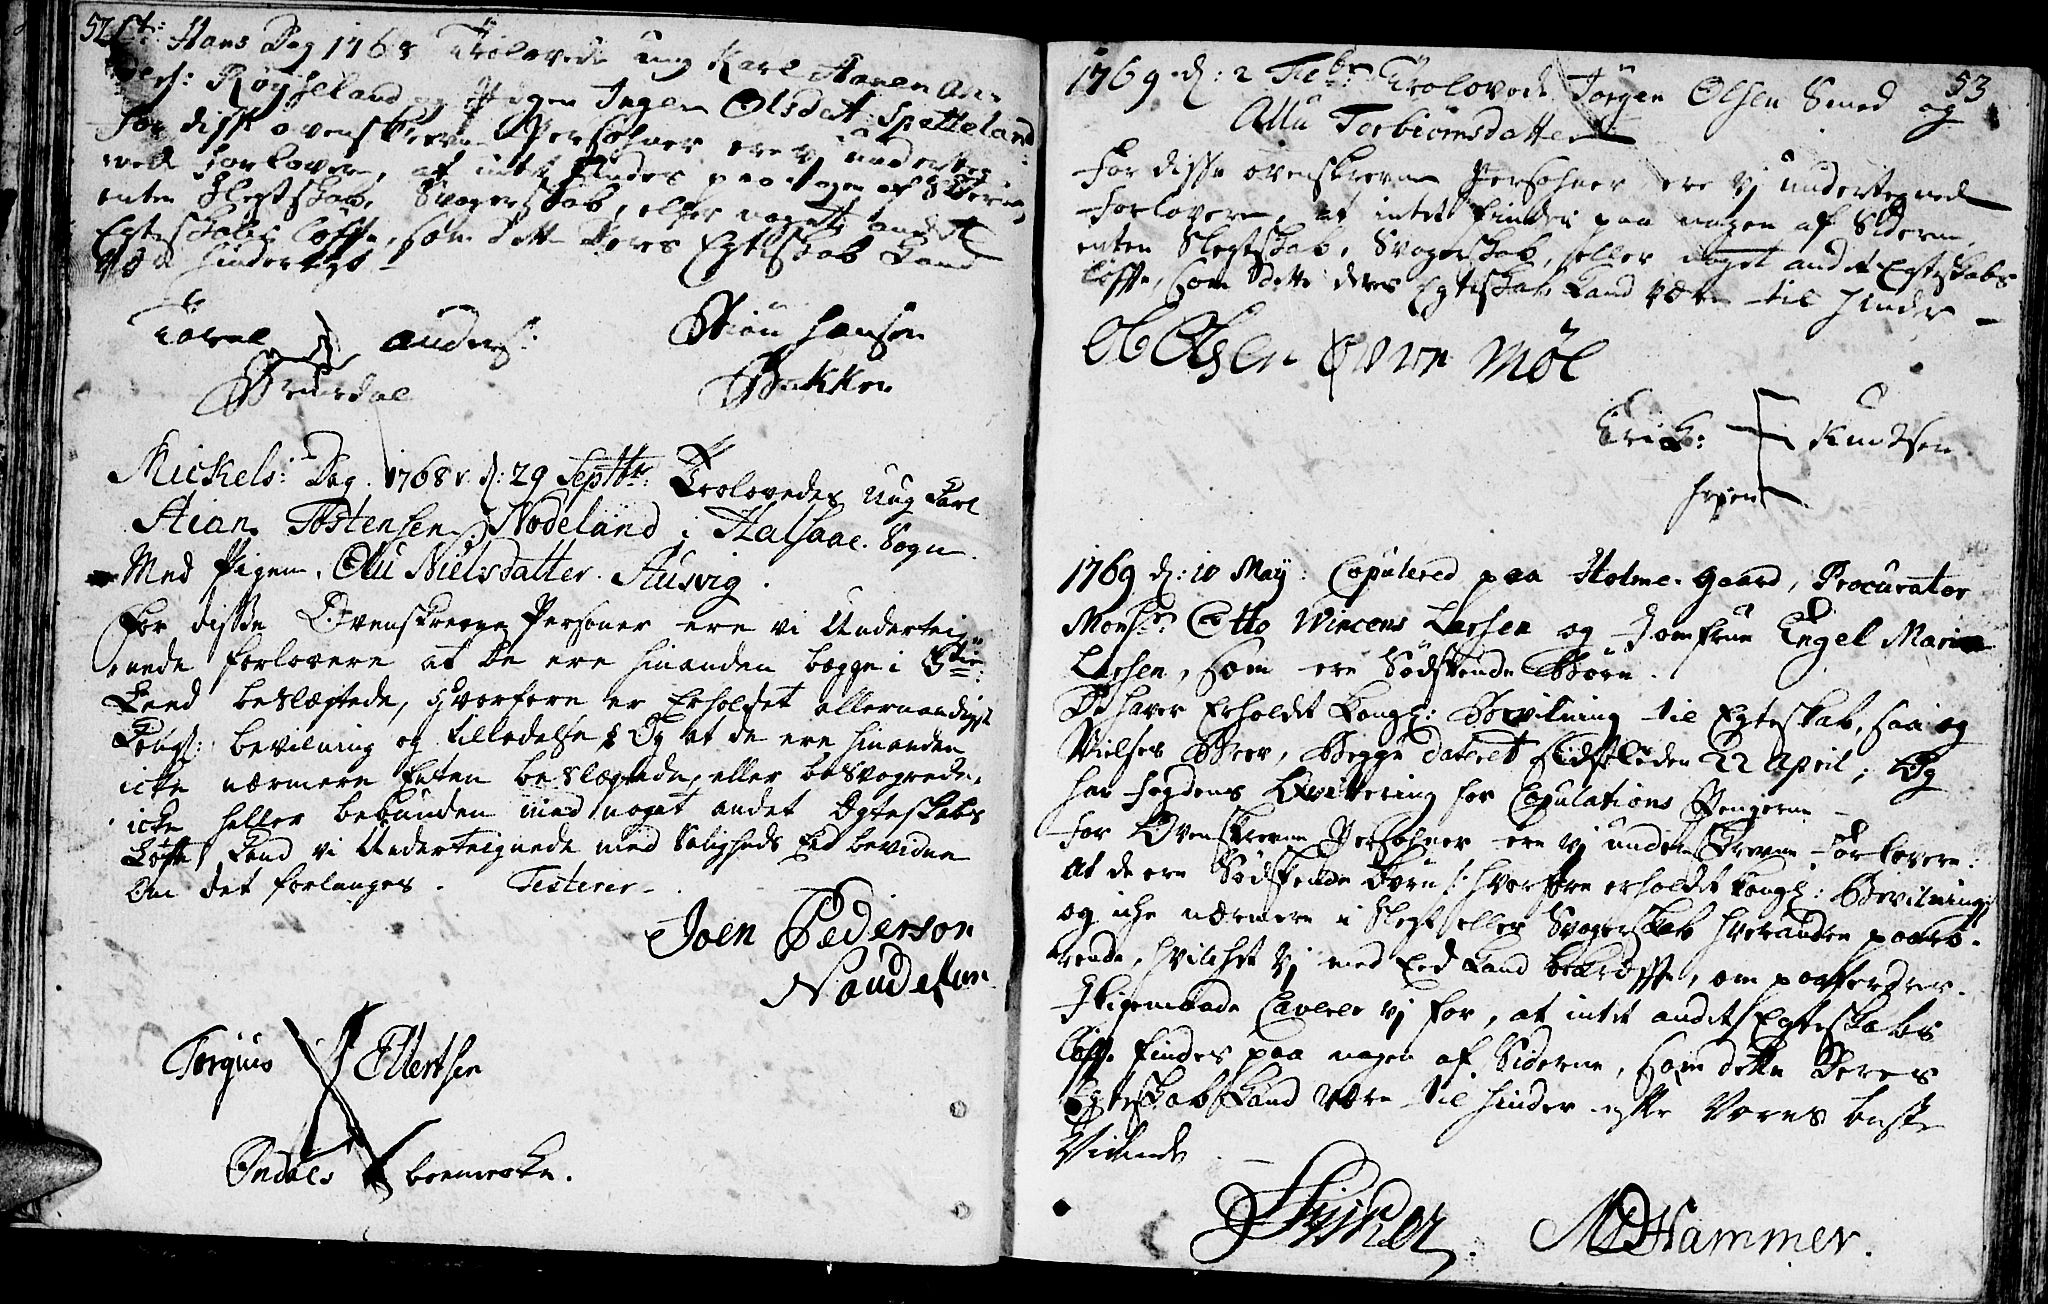 52
St: Hans Dag 1768 Trolovede ung Karl Aanen An-
ders: Røyseland og Pigen Inger Olsdat: Spetteland
For disse ovenskrevne Persohner ere vj underteg-
nede Forlovere, at intet findes paa nogen af Siderne,
enten Slegtskab, Svogerskab, eller noget andet
Egteskabs Løffte, som dette Deres Egteskab kand
være hinderligt -
Torel Anders:
Bruusdal
Stiøu Hansen
Bakken
Mickels: Dag. 1768 d: 29 Septbr. Trolovedes ung Karl
Stian Tostensen Nodeland i Halsaae. Sogn.
Med Pigen. Olu Nielsdatter. Ausvig.
for disse Ovenskrevne Personer ere vi Underteig-
nede forlovere at de ere hinanden begge i 3die
Leed beslægtede, hvorfore er Erholdet allernaadigst
Kongl: bevilning og tilladelse Og at de ere hinanden
icke nærmere Enten beslægtede, eller besvogrede,
icke heller bebunden med noget andet Egteskabs
Løfte kand vi Underteignede med Saligheds Eed bevidne
Om det forlanges. Testerer-
Joen Pederson
Naudesun
Torgius Ellertsen
Indals boemerke.
53
1769 d: 2 Febr: Trolovede Jørgen Olsen Smed og
Allu Torbiørnsdatter
For disse ovenskrevne Persohner ere vj undertegnede
Forlovere, at intet findes paa nogen af Siderne,
enten Slegtskab, Svogerskab, eller noget andet Egteskabs
Løffte, som dette deres Egteskab kand være til hinder -
Ole Olsen Øvre Møl
Erik: Knudsen
1769 d: 10 May: Copulered paa Holme-gaard, Procurator
Monsr: Otto Wincens Lassen og Jomfrue Engel Marie
Lassen, som ere Sødskende Børn.
De haver Erholdet Kongl: Bevilning til Egteskab, saa og
Vielses Brev, Begge dateret sidstleden 22 April; Og
har fogdens Qvittering for Copulations Pengene -
For Ovenskrevne Persohner ere vj underskrevne Forlovere:
At de ere Sødskende Børn /: hvorfore erholdet Kongl: Bevilning:/
og icke nærmere i Slegt eller Svogerskab hverandre paarø-
rende, hvilchet vj med Eed kand bekræffte, om paafordres.
Ligemaade Caverer vj for, at intet andet Egteskabs
Løffte findes paa nogen af Siderne, som dette Deres
Egteskab kand være til hinder efter Vores beste
Vidende. -
MDHammer.